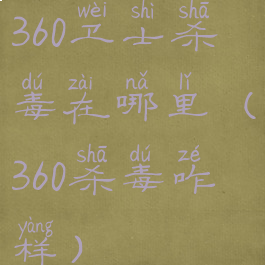 wèi shì shā
360卫士杀
dú zài nǎ lǐ
毒在哪里（
shā dú zé
360杀毒咋
yàng
样）